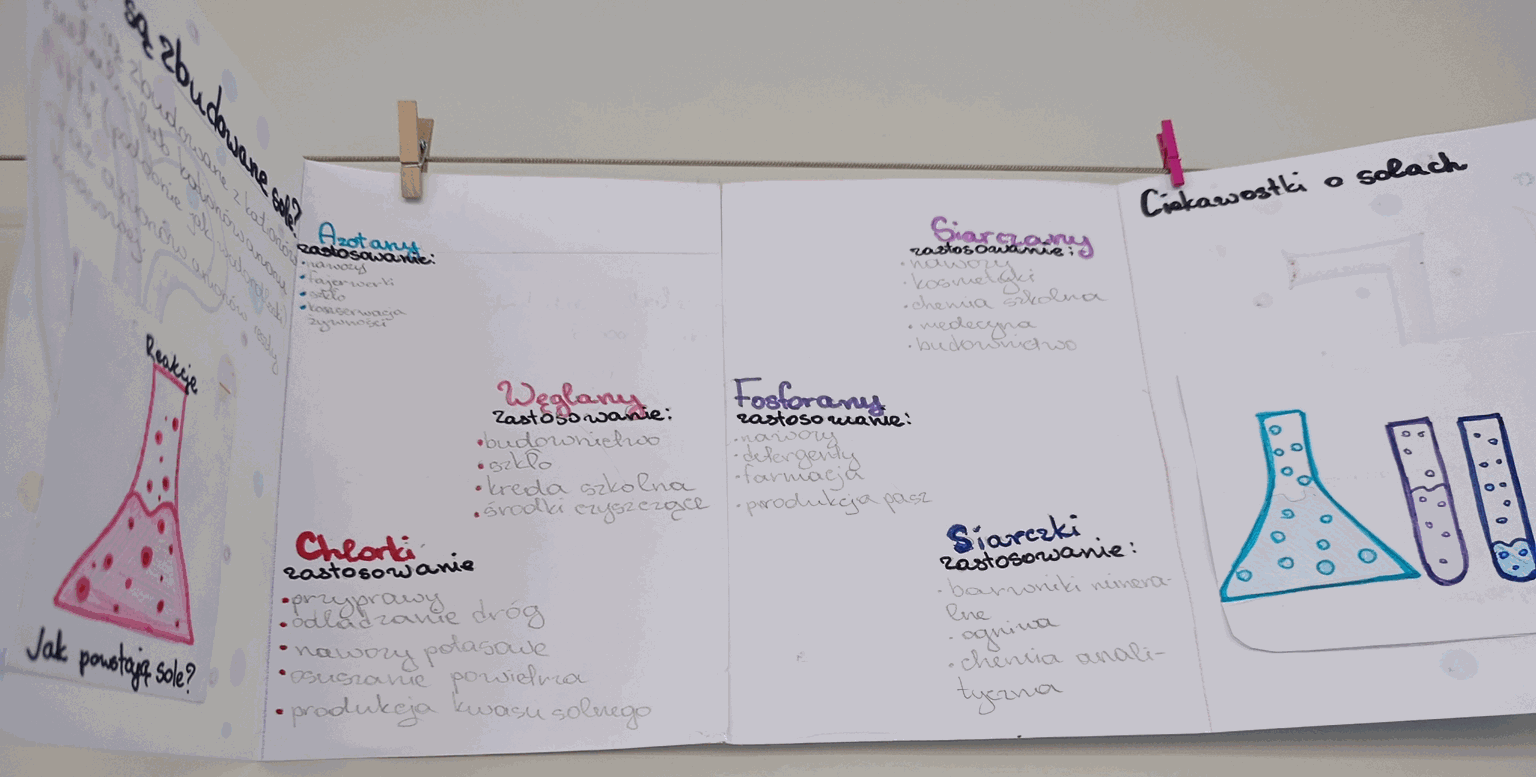 są zbudowane sole?
Reakcje
Jak powstają sole?
Azotany
zastosowanie:
•nawozy
•fajerwerki
•szkło
•konserwacja
żywności
Węglany
zastosowanie:
•budownictwo
•szkło
•kreda szkolna
•środki czyszczące
Chlorki
zastosowanie
•przyprawy
•odladzanie dróg
•nawozy potasowe
•osuszanie powietrza
•produkcja kwasu solnego
Siarczany
zastosowanie:
•nawozy
•kosmetyki
•chemia szkolna
•medycyna
•budownictwo
Fosforany
zastosowanie:
•nawozy
•detergenty
•farmacja
•produkcja pasz
Siarczki
zastosowanie:
•barwniki minera-
lne
•ogniwa
•chemia anali-
tyczna
Ciekawostki o solach